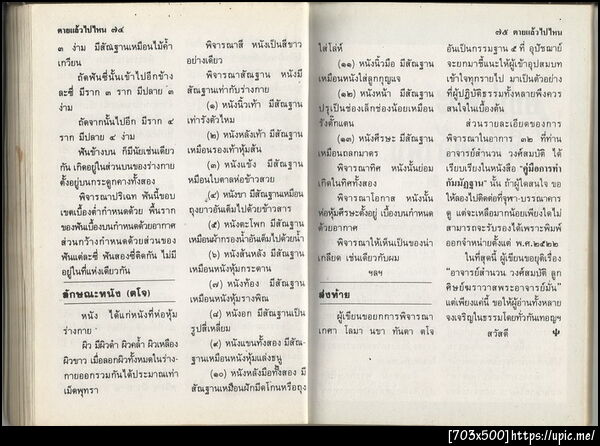 ตายแล้วไปไหน ๗๔
๓ ง่าม มีสัณฐานเหมือนไม้ค้ำ
เกวียน
ถัดฟันซี่นั้นเข้าไปอีกข้าง
ละซี่ มีราก ๓ ราก มีปลาย ๓
ง่าม
ถัดจากนั้นไปอีก มีราก ๔
ราก มีปลาย ๔ ง่าม
ฟันข้างบน ก็มีนัยเช่นเดียว
กัน เกิดอยู่ในส่วนบนของร่างกาย
ตั้งอยู่บนกระดูกคางทั้งสอง
พิจารณาปริเฉท ฟันนี้ขอบ
เขตเบื้องต่ำกำหนดด้วย พื้นราก
ของฟันเบื้องบนกำหนดด้วยอากาศ
ส่วนกว้างกำหนดด้วยส่วนของ
ฟันแต่ละซี่ ฟันสองซี่ติดกัน ไม่มี
อยู่ในที่แห่งเดียวกัน
ลักษณะหนัง (ตโจ)
หนัง ได้แก่หนังที่ห่อหุ้ม
ร่างกาย
ผิว มีผิวดำ ผิวคล้ำ ผิวเหลือง
ผิวขาว เมื่อลอกผิวทั้งหมดในร่าง-
กายออกรวมกันได้ประมาณเท่า
เม็ดพุทรา
พิจารณาสี หนังเป็นสีขาว
อย่างเดียว
พิจารณาสัณฐาน หนังมี
สัณฐานเท่ากับร่างกาย
(๑) หนังนิ้วเท้า มีสัณฐาน
เท่ารังตัวไหม
(๒) หนังหลังเท้า มีสัณฐาน
เหมือนรองเท้าหุ้มส้น
(๓) หนังแข้ง มีสัณฐาน
เหมือนใบตาลห่อข้าวสวย
(๔) หนังขา มีสัณฐานเหมือน
ถุงยาวอันเต็มไปด้วยข้าวสาร
(๕) หนังตะโพก มีสัณฐาน
เหมือนผ้ากรองน้ำอันเต็มไปด้วยน้ำ
(๖) หนังสันหลัง มีสัณฐาน
เหมือนหนังหุ้มกระดาน
(๗) หนังท้อง มีสัณฐาน
เหมือนหนังหุ้มรางพิณ
(๘) หนังอก มีสัณฐานเป็น
รูปสี่เหลี่ยม
(๙) หนังแขนทั้งสอง มีสัณ-
ฐานเหมือนหนังหุ้มแล่งธนู
(๑๐) หนังหลังมือทั้งสอง มี
สัณฐานเหมือนฝักมีดโกนหรือถุง
๗๕ ตายแล้วไปไหน
ใส่โล่ห์
(๑๑) หนังนิ้วมือ มีสัณฐาน
เหมือนหนังใส่ลูกกุญแจ
(๑๒) หนังหน้า มีสัณฐาน
ปรุเป็นช่องเล็กช่องน้อยเหมือน
รังตั๊กแตน
(๑๓) หนังศีรษะ มีสัณฐาน
เหมือนถลกบาตร
พิจารณาทิศ หนังนั้นย่อม
เกิดในทิศทั้งสอง
พิจารณาโอกาส หนังนั้น
ห่อหุ้มศีรษะตั้งอยู่ เบื้องบนกำหนด
ด้วยอากาศ
พิจารณาให้เห็นเป็นของน่า
เกลียด เช่นเดียวกับผม
ฯลฯ
ส่งท้าย
ผู้เขียนขอยกการพิจารณา
เกศา โลมา นขา ทันตา ตโจ
อันเป็นกรรมฐาน ๕ ที่ อุปัชฌาย์
จะยกมาชี้แนะให้ผู้เข้าอุปสมบท
เข้าใจทุกรายไป มาเป็นตัวอย่าง
ที่ผู้ปฏิบัติธรรมทั้งหลายพึงควร
สนใจในเบื้องต้น
ส่วนรายละเอียดของการ
พิจารณาในอาการ ๓๒ ที่ท่าน
อาจารย์สำนวน วงศ์สมบัติ ได้
เรียบเรียงในหนังสือ "คู่มือการทำ
กัมมัฏฐาน" นั้น ถ้าผู้ใดสนใจ ขอ
ให้ลองไปติดต่อที่จุฬา-บรรณาคาร
ดู แต่จะเหลือมากน้อยเพียงใดไม่
สามารถจะรับรองได้เพราะพิมพ์
ออกจำหน่ายตั้งแต่ พ.ศ.๒๕๒๒
ในที่สุดนี้ ผู้เขียนขอยุติเรื่อง
"อาจารย์สำนวน วงศ์สมบัติ ลูก
ศิษย์ฆราวาสพระอาจารย์มั่น"
แต่เพียงแค่นี้ ขอให้ผู้อ่านทั้งหลาย
จงเจริญในธรรมโดยทั่วกันเทอญฯ
สวัสดี
[703x500]https://upic.me/